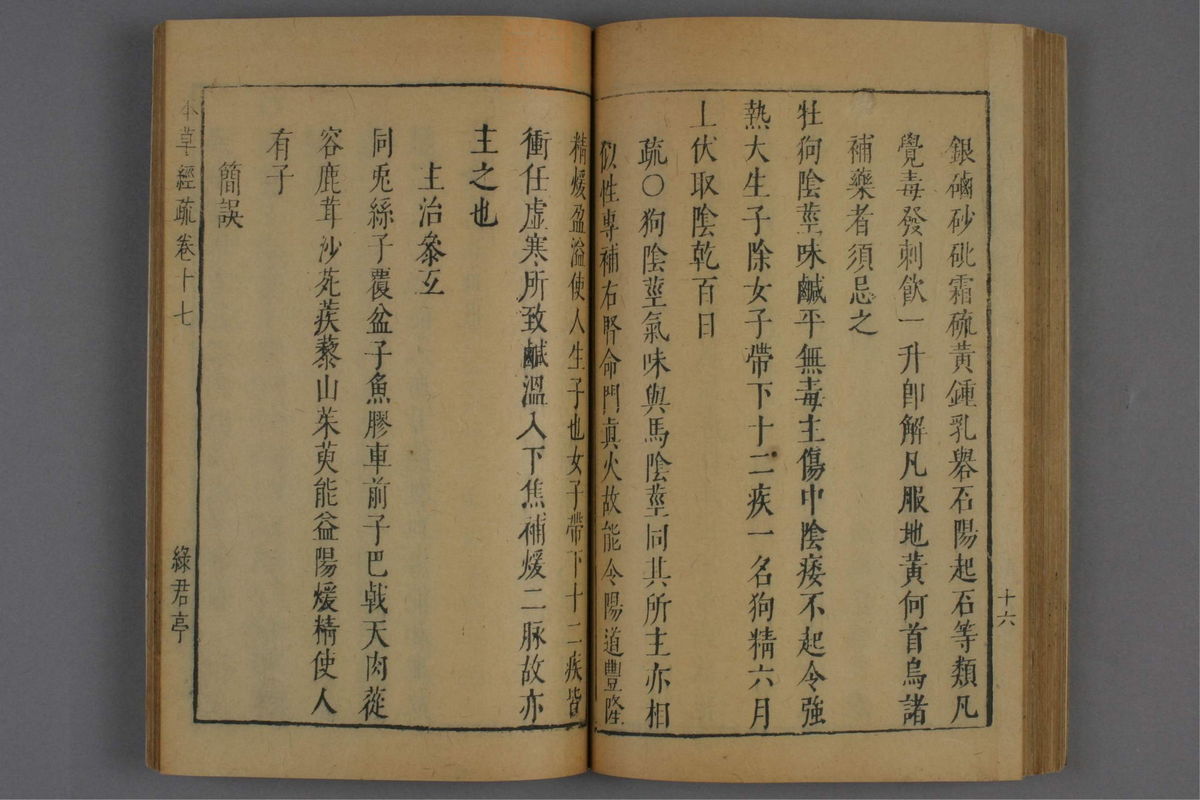 銀硇砂砒霜硫黃鍾乳礜石陽起石等類凡
覺毒發刺飲一升卽解凡服地黃何首烏諸
補藥者須忌之
牡狗陰莖味鹹平無毒主傷中陰痿不起令強
熱大生子除女子帶下十二疾一名狗精六月
上伏取陰乾百日
疏〇狗陰莖氣味與馬陰莖同其所主亦相
似性專補右腎命門眞火故能令陽道豐隆
精煖盈溢使人生子也女子帶下十二疾皆
衝任虛寒所致鹹溫入下焦補煖二脉故亦
主之也
主治參互
同兎絲子覆盆子魚膠車前子巴戟天肉蓯
容鹿茸沙苑蒺藜山茱萸能益陽煖精使人
有子
簡誤
十六
本草經疏卷十七
綠君亭